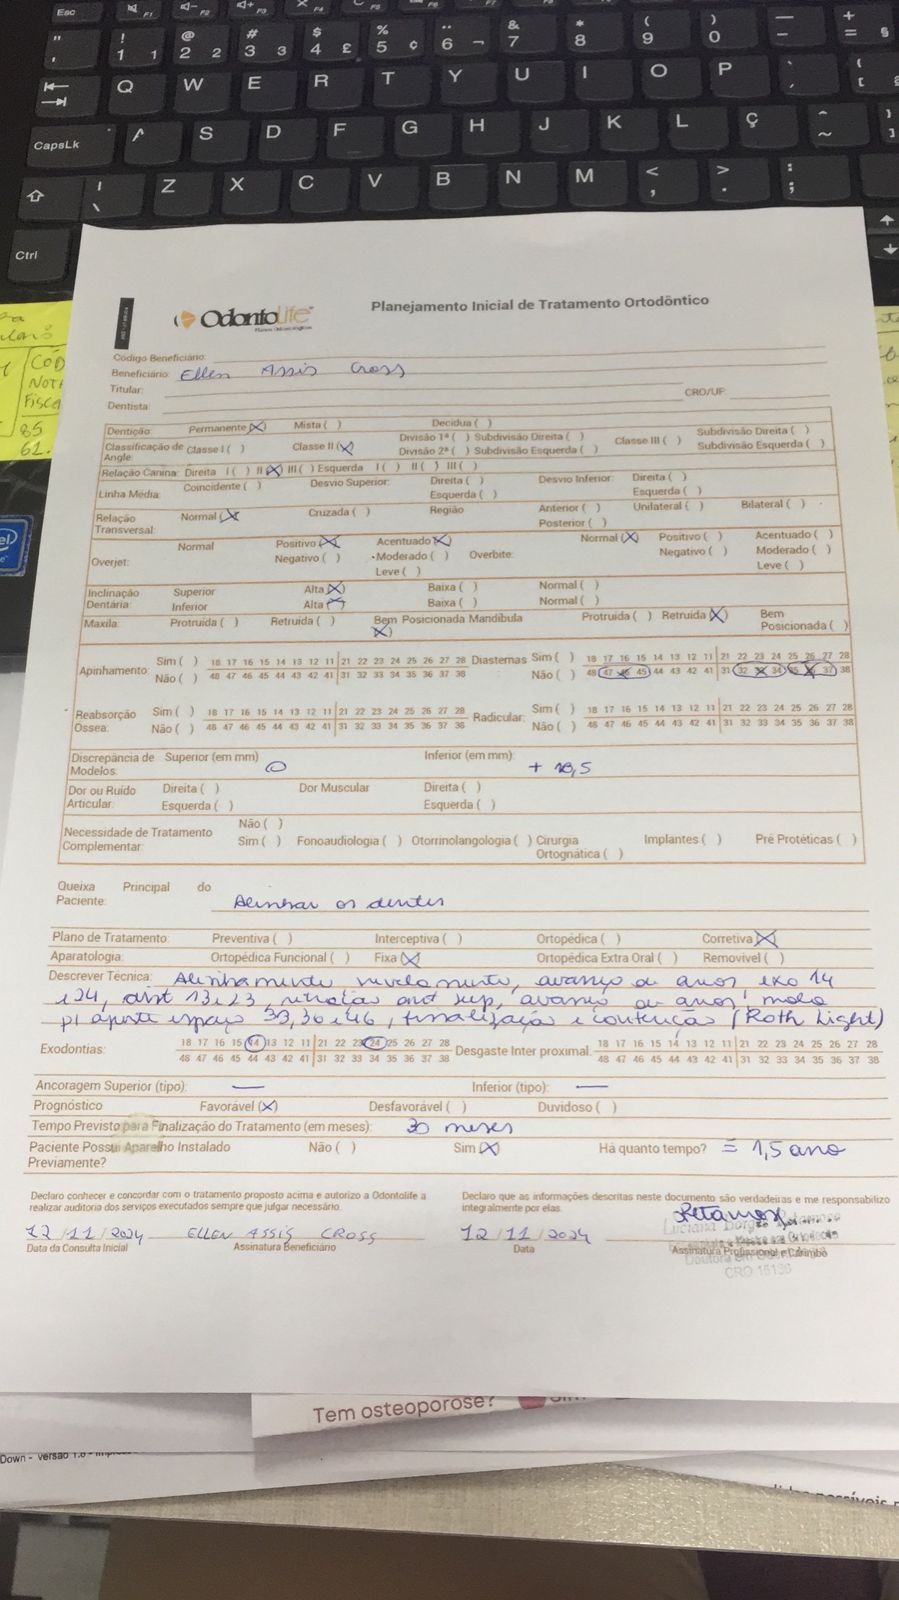 Esc F1 F2 F3 F4
! 1 1 @ 2 2 # 3 3 $ 4 £ % 5 ¢ 6 ¬ & 7 * 8 ( 9 ) 0 — - + = §
Q W E R T Y U I O P
CapsLk A S D F G H J K L Ç
| \ Z X C V B N M < , > . : ;
Ctrl
OdontoLife
Planos Odontológicos
Planejamento Inicial de Tratamento Ortodôntico
Código Beneficiário:
Beneficiário: Ellen Assis Cross
Titular:
Dentista: CRO/UF:
Dentição: Permanente (X) Mista ( ) Decídua ( )
Classificação de Angle: Classe I ( ) Classe II (X) Divisão 1ª ( ) Subdivisão Direita ( ) Classe III ( ) Subdivisão Direita ( )
Divisão 2ª ( ) Subdivisão Esquerda ( ) Subdivisão Esquerda ( )
Relação Canina: Direita I ( ) II (X) III ( ) Esquerda I ( ) II ( ) III ( )
Linha Média: Coincidente ( ) Desvio Superior: Direita ( ) Desvio Inferior: Direita ( )
Esquerda ( ) Esquerda ( )
Relação Transversal: Normal (X) Cruzada ( ) Região Anterior ( ) Unilateral ( ) Bilateral ( )
Posterior ( )
Overjet: Normal Positivo (X) Acentuado (X) Overbite: Normal (X) Positivo ( ) Acentuado ( )
Negativo ( ) Moderado ( ) Negativo ( ) Moderado ( )
Leve ( ) Leve ( )
Inclinação Dentária: Superior Alta (X) Baixa ( ) Normal ( )
Inferior Alta (X) Baixa ( ) Normal ( )
Maxila: Protruida ( ) Retruida ( ) Bem Posicionada (X) Mandibula Protruida ( ) Retruida (X) Bem Posicionada ( )
Apinhamento: Sim ( ) 18 17 16 15 14 13 12 11 21 22 23 24 25 26 27 28 Diastemas Sim ( ) 18 17 16 15 14 13 12 11 21 22 23 24 25 26 27 28
Não ( ) 48 47 46 45 44 43 42 41 31 32 33 34 35 36 37 38 Não ( ) 48 47 46 45 44 43 42 41 31 32 33 34 35 36 37 38
Reabsorção Óssea: Sim ( ) 18 17 16 15 14 13 12 11 21 22 23 24 25 26 27 28 Radicular: Sim ( ) 18 17 16 15 14 13 12 11 21 22 23 24 25 26 27 28
Não ( ) 48 47 46 45 44 43 42 41 31 32 33 34 35 36 37 38 Não ( ) 48 47 46 45 44 43 42 41 31 32 33 34 35 36 37 38
Discrepância de Modelos: Superior (em mm) 0 Inferior (em mm): + 18,5
Dor ou Ruído Articular: Direita ( ) Dor Muscular Direita ( )
Esquerda ( ) Esquerda ( )
Necessidade de Tratamento Complementar: Não ( )
Sim ( ) Fonoaudiologia ( ) Otorrinolangologia ( ) Cirurgia Ortognática ( ) Implantes ( ) Pré Protéticas ( )
Queixa Principal do Paciente: Alinhar os dentes
Plano de Tratamento: Preventiva ( ) Interceptiva ( ) Ortopédica ( ) Corretiva (X)
Aparatologia: Ortopédica Funcional ( ) Fixa (X) Ortopédica Extra Oral ( ) Removível ( )
Descrever Técnica: Alinhamento nivelamento, avanço de arcos exo 14
e 24, dist 13 e 23, retração ant sup, avanço de arcos mola
p/ aporte espaço 33, 36 e 46, finalização e contenção (Roth Light)
Exodontias: 18 17 16 15 14 13 12 11 21 22 23 24 25 26 27 28 Desgaste Inter proximal: 18 17 16 15 14 13 12 11 21 22 23 24 25 26 27 28
48 47 46 45 44 43 42 41 31 32 33 34 35 36 37 38 48 47 46 45 44 43 42 41 31 32 33 34 35 36 37 38
Ancoragem Superior (tipo): — Inferior (tipo): —
Prognóstico Favorável (X) Desfavorável ( ) Duvidoso ( )
Tempo Previsto para Finalização do Tratamento (em meses): 30 meses
Paciente Possui Aparelho Instalado Previamente? Não ( ) Sim (X) Há quanto tempo? = 1,5 ano
Declaro conhecer e concordar com o tratamento proposto acima e autorizo a Odontolife a realizar auditoria dos serviços executados sempre que julgar necessário.
Declaro que as informações descritas neste documento são verdadeiras e me responsabilizo integralmente por elas.
12/11/2024 ELLEN ASSIS CROSS 12/11/2024
Data da Consulta Inicial Assinatura Beneficiário Data Assinatura Profissional e Carimbo
Luciana Borges Retamoso
CRO 15136
Tem osteoporose?
Down - versão 1.6
CÓD
NOTA
Fisca
85
62.